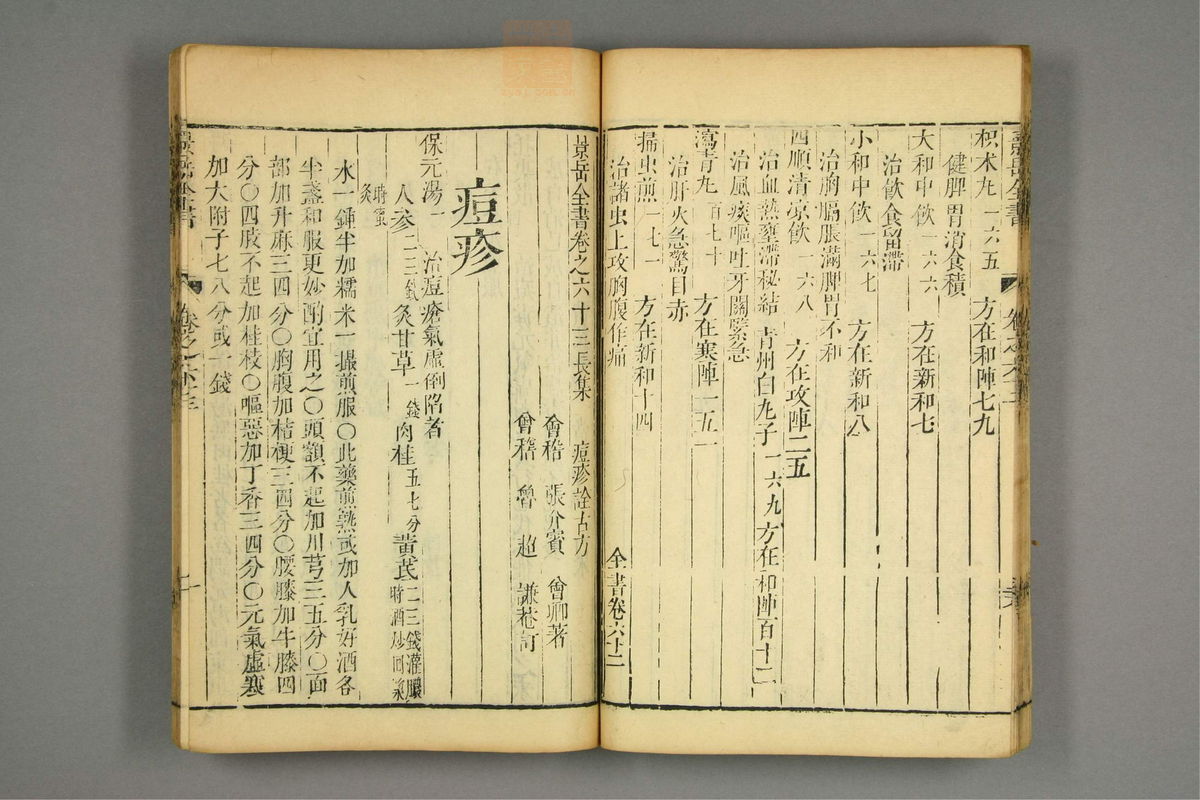 枳朮丸一六五　方在和陣七九
健脾胃消食積
大和中飲一六六　方在新和七
治飲食留滯
小和中飲一六七　方在新和八
治胸膈脹滿脾胃不和
四順清凉飲一六八　方在攻陣二五
治血熱壅滯秘結　青州白丸子一六九方在和陣百十二
治風痰嘔吐牙關緊急
瀉青丸百七十　方在寒陣一五一
治肝火急驚目赤
掃虫煎一七一　方在新和十四
治諸虫上攻胸腹作痛
全書卷六十二
景岳全書卷之六十三長集　痘疹詮古方
會稽　張介賓　會卿著
會稽　魯超　謙菴訂
痘疹
保元湯一　治痘瘡氣虛倒陷者
人參二三錢炙甘草一錢肉桂五七分黃芪二三錢灌膿時酒炒回漿時蜜炙
水一鍾半加糯米一撮煎服○此藥煎熟或加人乳好酒各
半盞和服更妙酌宜用之○頭額不起加川芎三五分○面
部加升麻三四分○胸腹加桔梗三四分○腰膝加牛膝四
分○四肢不起加桂枝○嘔惡加丁香三四分○元氣虛寒
加大附子七八分或一錢
景岳全書